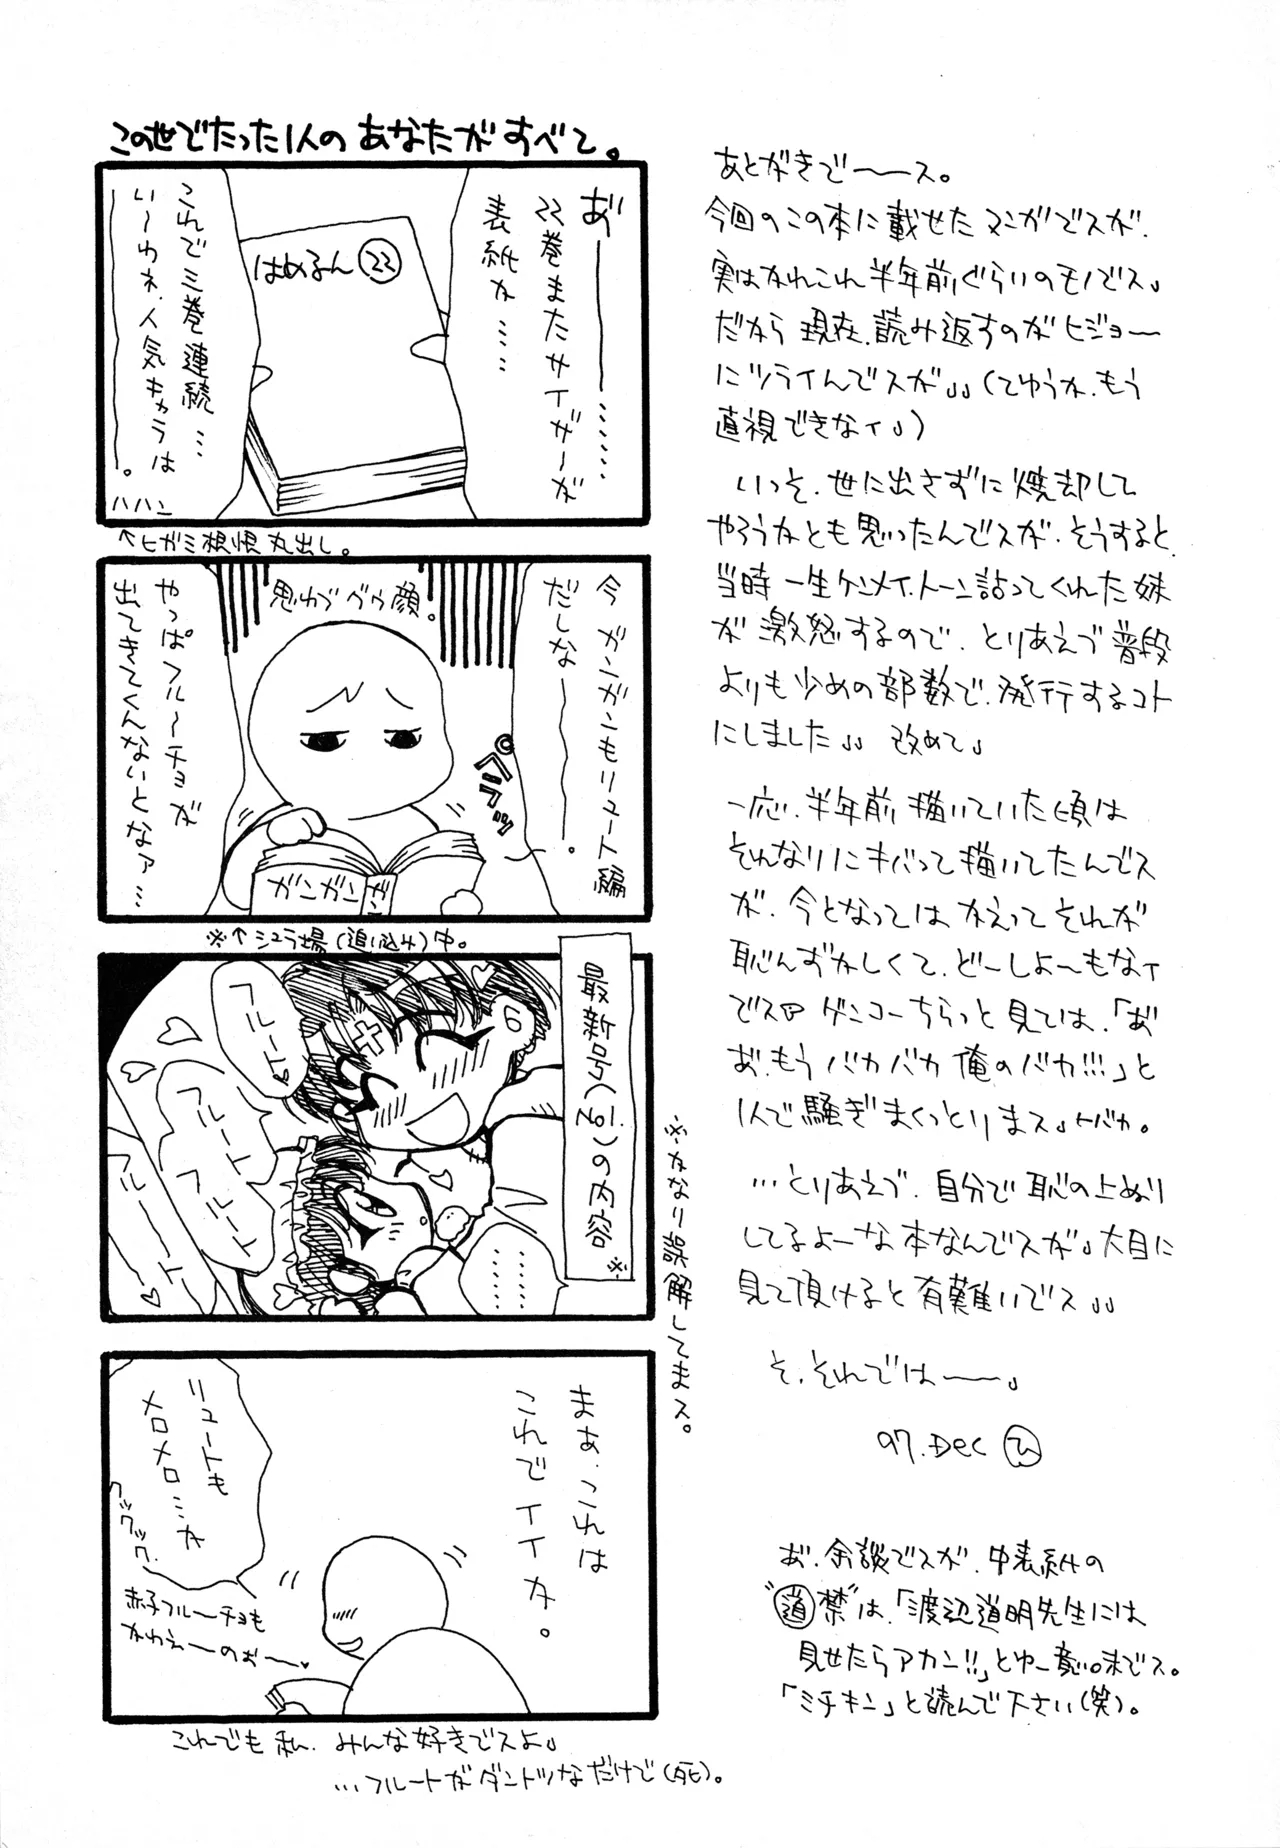 この世でたった1人の あなたがすべて。
あ゛ーーー………
22巻またサイザーが
表紙か……
はめるん㉒
これで三巻連続…
い〜わネ、人気キャラは
ーーー。
ハハン
↑ヒガミ根性丸出し。
今ガンガンもリュート編
だしなーーー。
思わずベぅ顔。
ペラッ
ガンガン
ガン
やっぱフルーチョが
出てきてくんないとなァ…
※↑シュラ場(追い込み)中。
最新号(’97.1)の内容※
フルート♥
フルート
フルート
フルートー♥
フルートー
………
※かなり誤解してまス。
まぁ、これは
これでイイか。
リュートも
メロメロ…か
クックックッ
赤子フルーチョも
かわえーのぉー♥
これでも私、みんな好きでスよ。
…フルートがダントツなだけで(死)。
あとがきでーース。
今回のこの本に載せたマンガでスが、
実はかれこれ半年前ぐらいのモノでス。
だから現在、読み返すのがヒジョー
にツライんでスが。。(てゆうか、もう
直視できなィ。)
いっそ、世に出さずに焼却して
やろうかとも思ったんでスが、そうすると、
当時一生ケンメイ、トーン貼ってくれた妹
が激怒するので、とりあえず普段
よりも少めの部数で、発行するコト
にしました。。改めて。
一応、半年前描いていた頃は
それなりにキバって描いてたんでス
が、今となってはかえってそれが
恥んずかしくて、どーしよ〜もなィ
でス ゲンコーちらっと見ては、「お
お、もうバカバカ俺のバカ!!!」と
1人で騒ぎまくっとりまス。トバカ。
…とりあえず、自分で恥の上ぬり
してるよーな本なんでスが。大目に
見て頂けると有難いでス。。
そ、それではーー。
97.Dec ひ
お、余談でスが、中表紙の
"道禁"は、「渡辺道明先生には
見せたらアカン!!」とゆー意味でス。
「ミチキン」と読んで下さい(笑)。